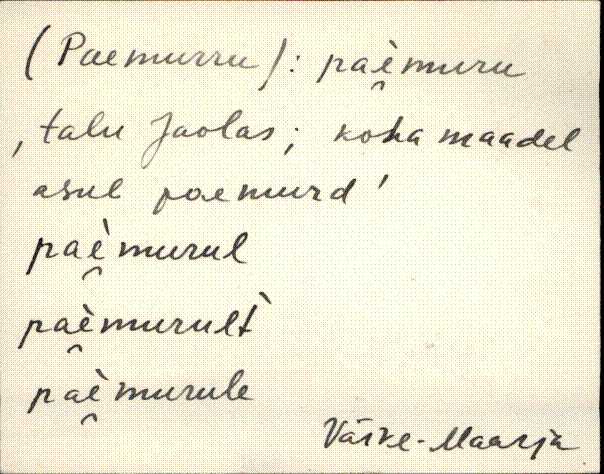 (Paemurru): paè̯muru
‚talu Jaolas; koha maadel
asub paemurd’
paè̯murul
paè̯murult̀
paè̯murule
Väike-Maarja